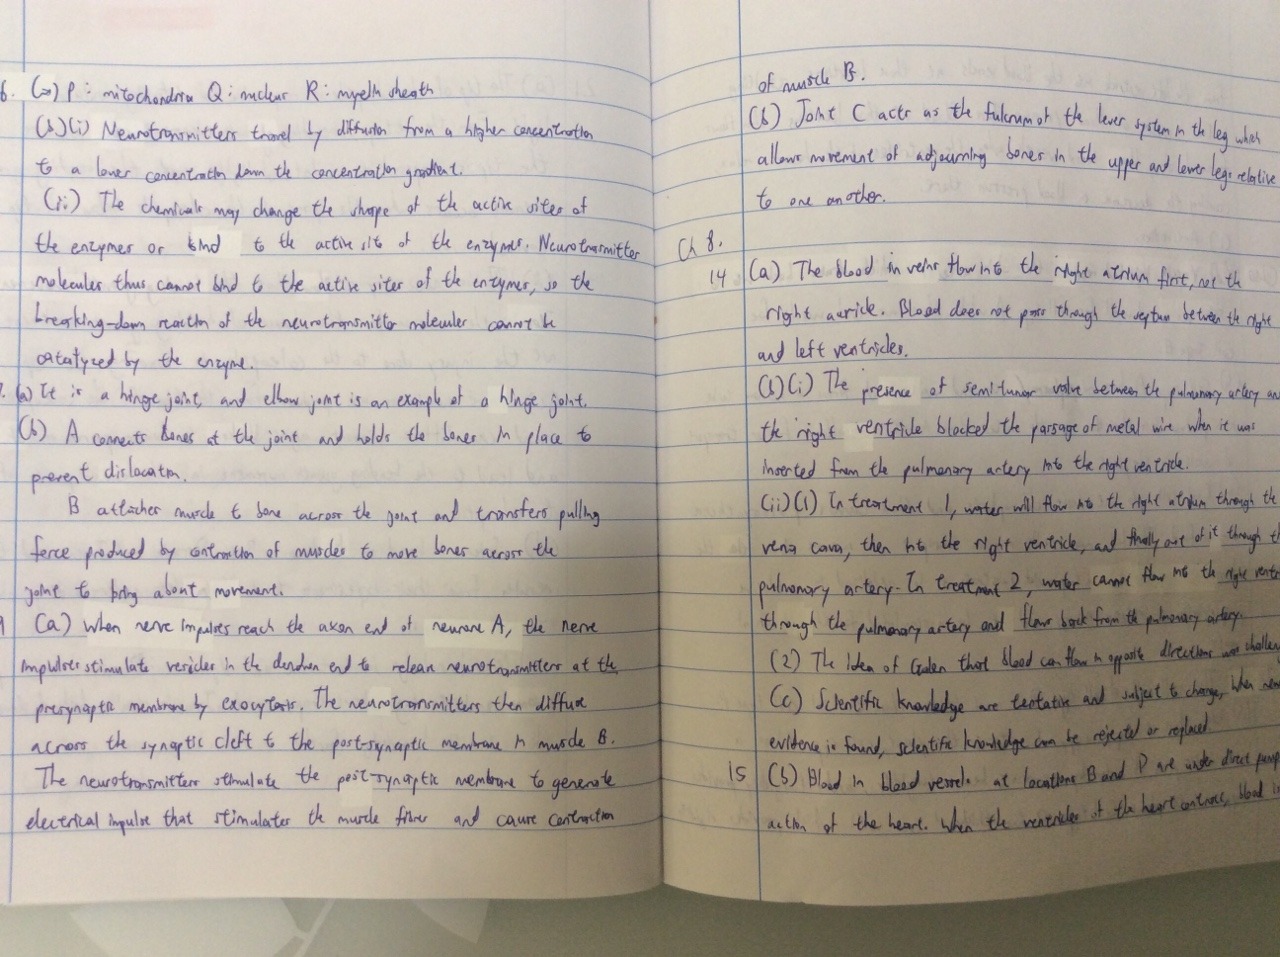 6. (a) P: mitochondria Q: nuclear R: myelin sheath
(b)(i) Neurotransmitters travel by diffusion from a higher concentration
to a lower concentration down the concentration gradient.
(ii) The chemicals may change the shape of the active sites of
the enzymes or bind to the active site of the enzymes. Neurotransmitter
molecules thus cannot bind to the active sites of the enzymes, so the
breaking-down reaction of the neurotransmitter molecules cannot be
catalyzed by the enzyme.
7. (a) It is a hinge joint, and elbow joint is an example of a hinge joint.
(b) A connects bones at the joint and holds the bones in place to
prevent dislocation.
B attaches muscle to bone across the joint and transfers pulling
force produced by contraction of muscles to move bones across the
joint to bring about movement.
(a) When nerve impulses reach the axon end of neurone A, the nerve
impulses stimulate vesicles in the dendron end to release neurotransmitters at the
presynaptic membrane by exocytosis. The neurotransmitters then diffuse
across the synaptic cleft to the post-synaptic membrane in muscle B.
The neurotransmitters stimulate the post-synaptic membrane to generate
electrical impulse that stimulates the muscle fibres and cause contraction
of muscle B.
(b) Joint C acts as the fulcrum of the lever system in the leg which
allows movement of adjourning bones in the upper and lower legs relative
to one another.
Ch 8.
14 (a) The blood in veins flow into the right atrium first, not the
right auricle. Blood does not pass through the septum between the right
and left ventricles.
(b)(i) The presence of semi-lunar valve between the pulmonary artery an
the right ventricle blocked the passage of metal wire when it was
inserted from the pulmonary artery into the right ventricle.
(ii)(1) In treatment 1, water will flow into the right atrium through the
vena cava, then into the right ventricle, and finally out of it through th
pulmonary artery. In treatment 2, water cannot flow into the right ventr
through the pulmonary artery and flows back from the pulmonary artery.
(2) The idea of Galen that blood can flow in opposite directions was challen
(c) Scientific knowledge are tentative and subject to change, When new
evidence is found, scientific knowledge can be rejected or replaced
15 (b) Blood in blood vessels at locations B and D are under direct pump
action of the heart. When the ventricles of the heart contract, blood in